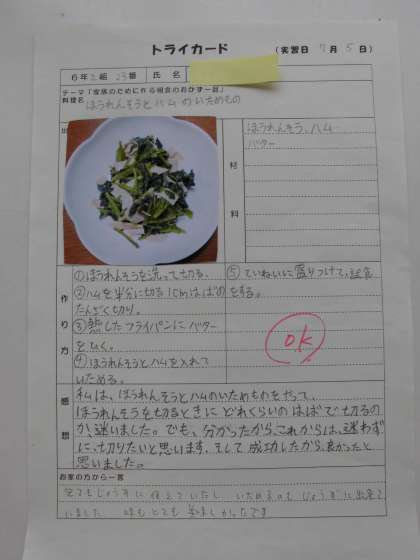 トライカード
(実習日 7月5日)
6年2組23番 氏名
テーマ「家族のために作る朝食のおかず一品」
料理名 ほうれんそうとハムのいためもの
材料
ほうれんそう、ハム
バター
作り方
①ほうれんそうを洗って切る。
②ハムを半分に切る1cmはばの
たんざく切り。
③熱したフライパンにバター
をひく。
④ほうれんそうとハムを入れて
いためる。
⑤ていねいに盛りつけて、試食
をする。
OK
感想
私は、ほうれんそうとハムのいためものをやって、
ほうれんそうを切るときにどれくらいのはばで切るの
か、迷いました。でも、分かったからこれからは、迷わず
に、切りたいと思います。そして成功したから、良かったと
思いました。
お家の方から一言
とてもじょうずに 使えていたし いためるのも じょうずに出来て
いました 味もとても 美味しかったです